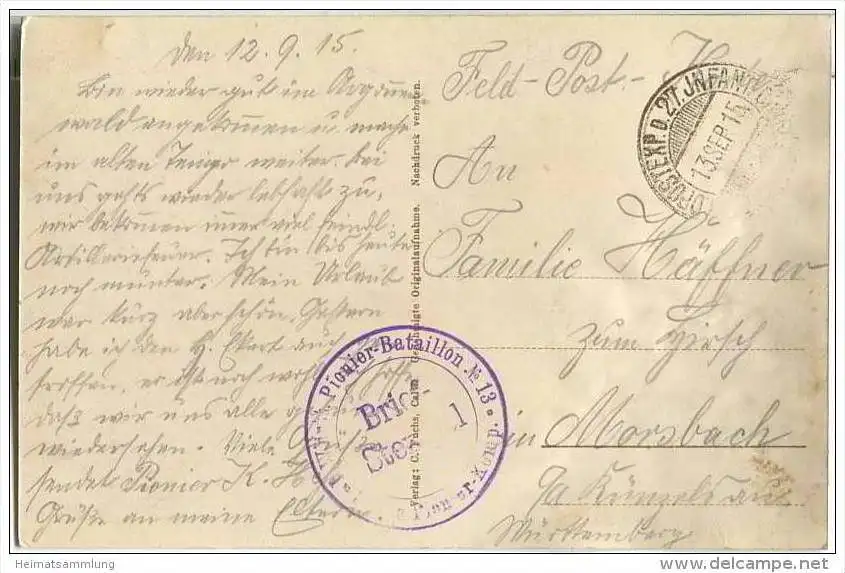 den 12.9.15.
Bin wieder gut im Argonnen
wald angekommen u. mache
im alten Tempo weiter. bei
uns gehts wieder lebhaft zu,
wir bekommen immer viel feindl.
Artilleriefeuer. Ich bin bis heute
noch munter. Mein Urlaub
war kurz aber schön. Gestern
habe ich den H. Ekert auch
troffen, er ist noch hoffe
daß wir uns alle
wiedersehen. Viele Grüße
sendet Pionier K. H
Grüße an meine Eltern
Verlag: C. Fuchs, Calw. Genehmigte Originalaufnahme. Nachdruck verboten.
Pionier-Bataillon No 13
Brief-
Stem 1
Feld-Post-Karte
DPOSTEXP. D. 27. INFANT
13 SEP 15
An
Familie Häffner
zum Hirsch
in Morsbach
Künzelsau
Württemberg
Heimatsammlung
delcampe.net